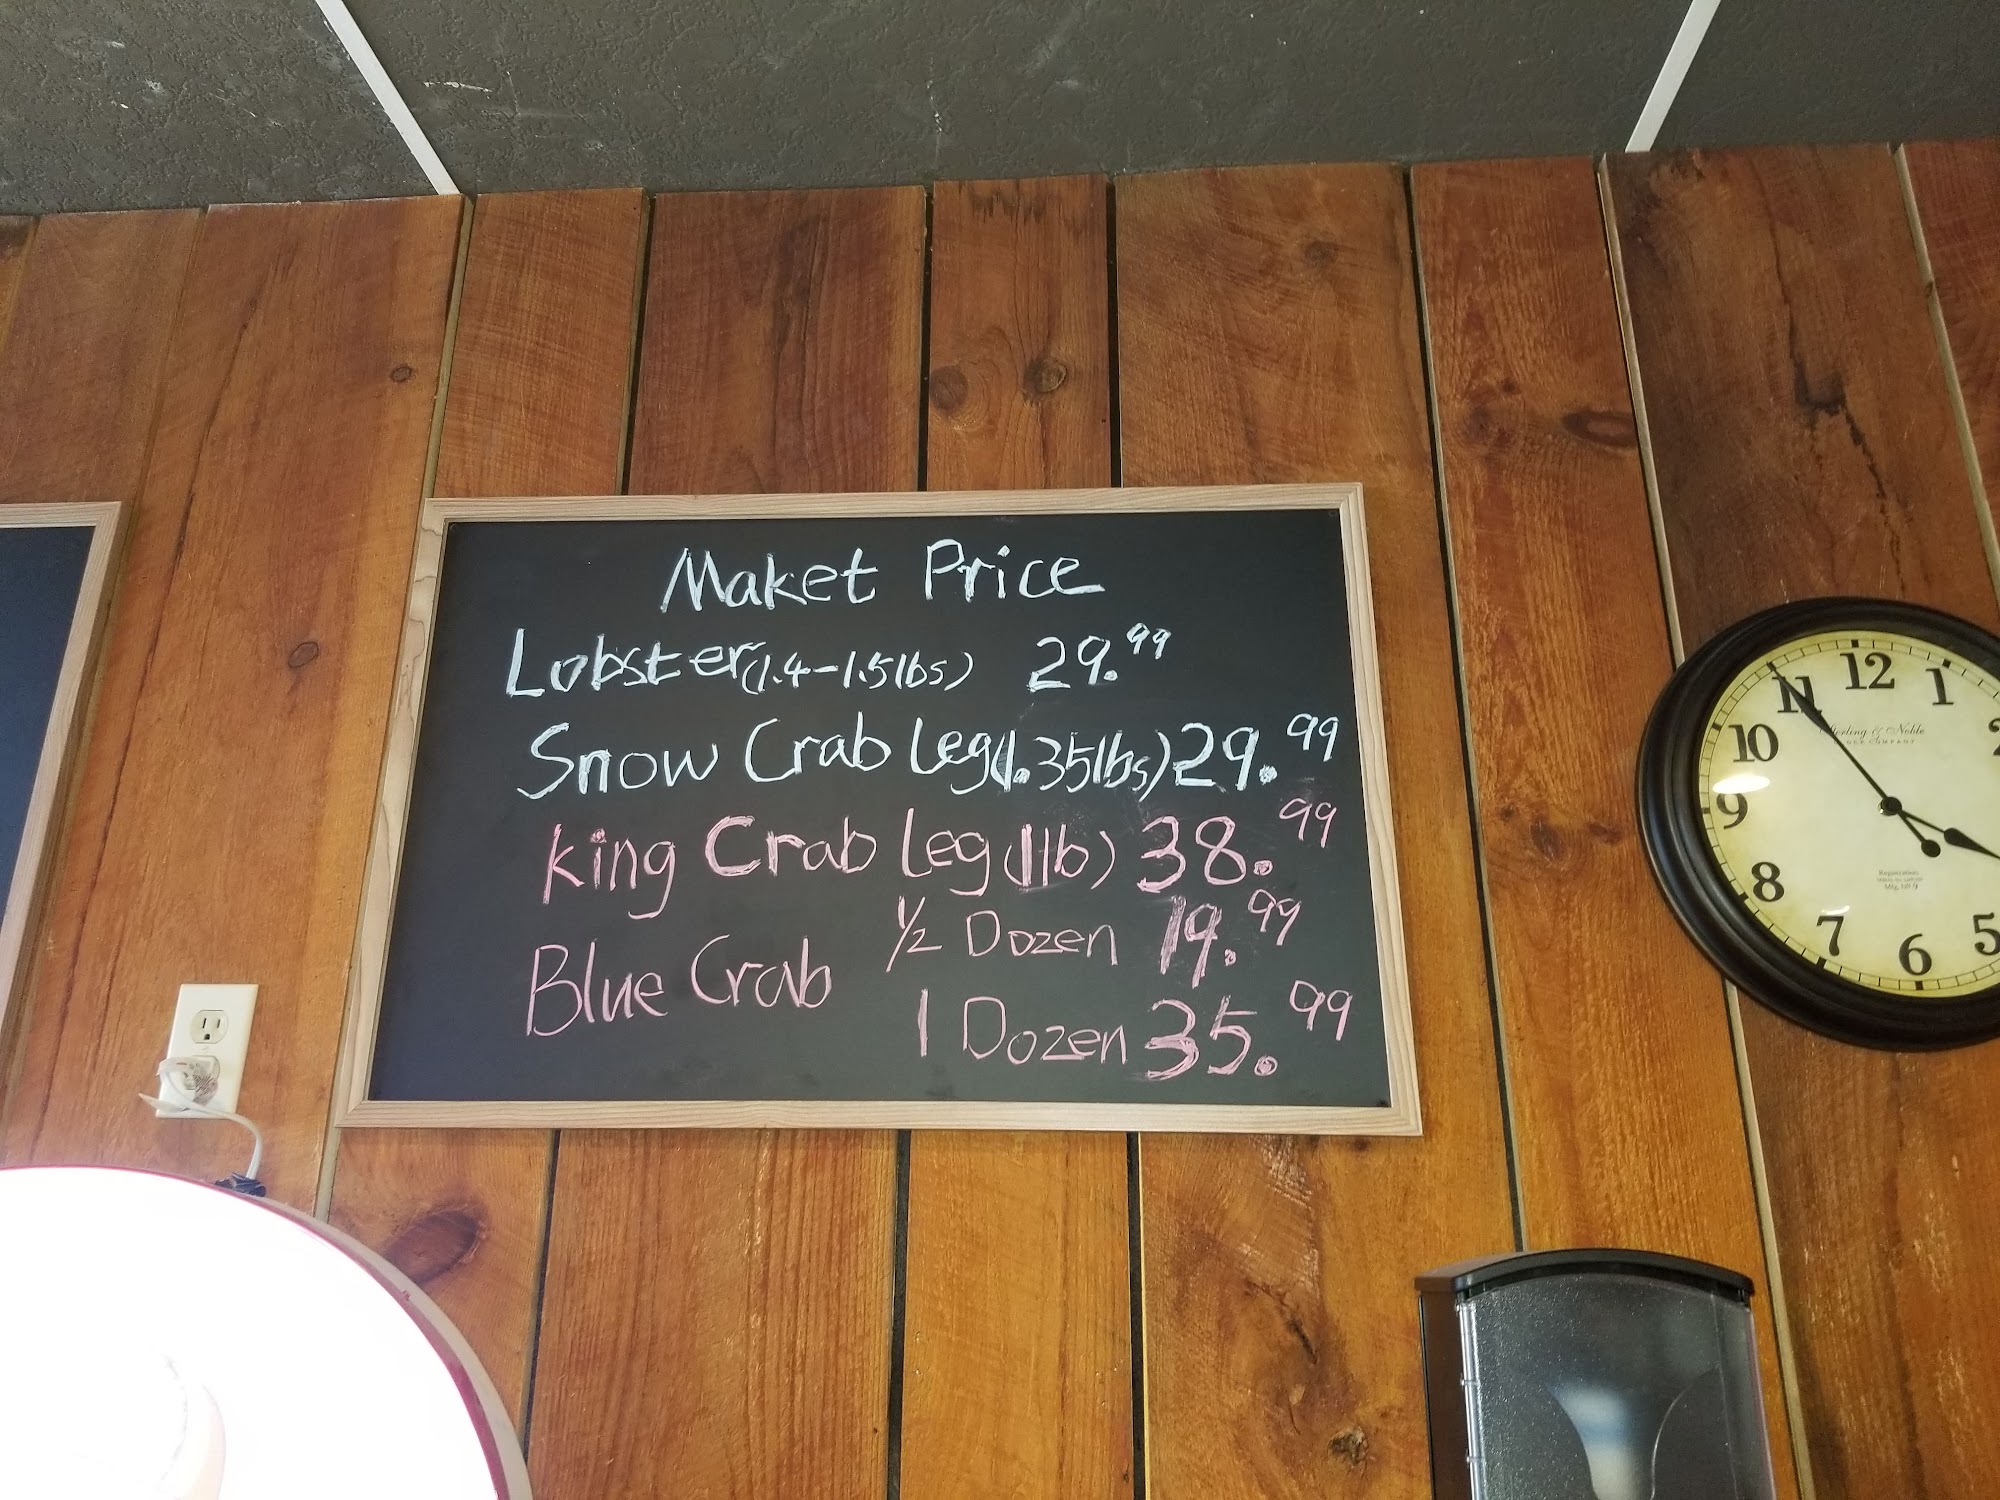 Maket Price
Lobster(1.4-1.5lbs) 29.99
Snow Crab Leg(1.35lbs) 29.99
King Crab Leg(1lb) 38.99
Blue Crab 1/2 Dozen 19.99
1 Dozen 35.99
12
11
1
10
2
9
8
7
6
5
Sterling & Noble